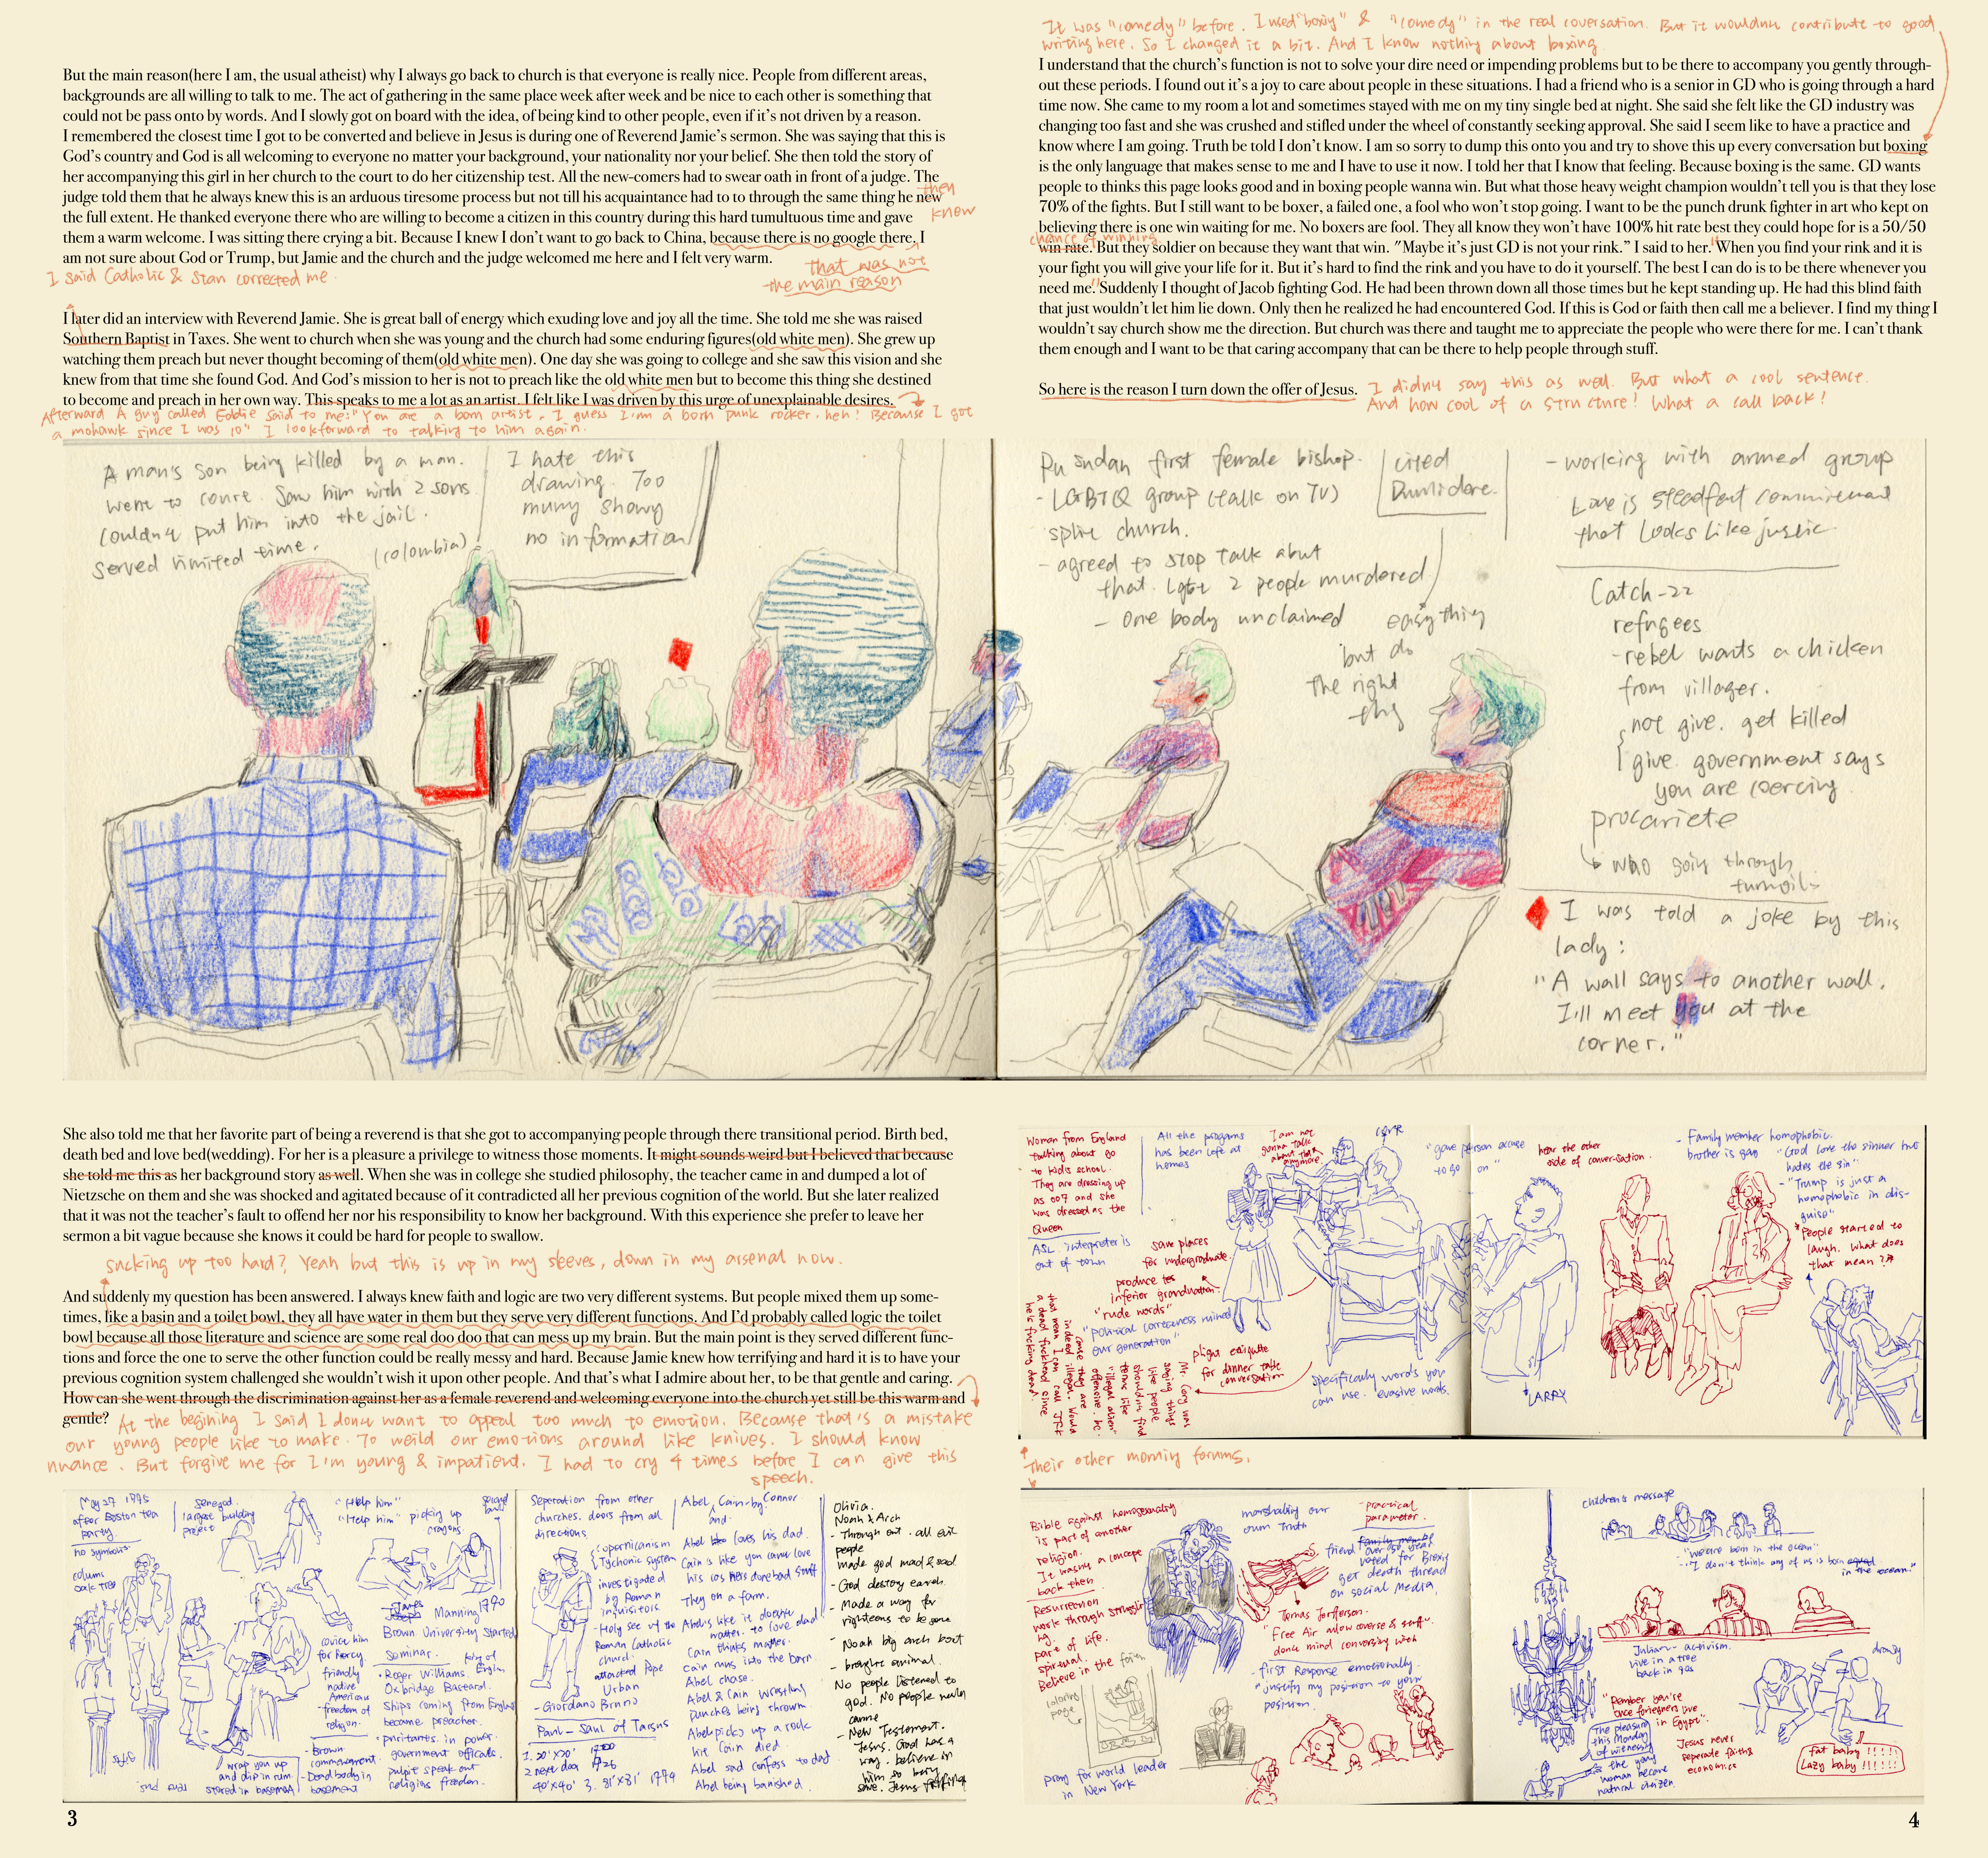 But the main reason(here I am, the usual atheist) why I always go back to church is that everyone is really nice. People from different areas,
backgrounds are all willing to talk to me. The act of gathering in the same place week after week and be nice to each other is something that
could not be pass onto by words. And I slowly got on board with the idea, of being kind to other people, even if it's not driven by a reason.
I remembered the closest time I got to be converted and believe in Jesus is during one of Reverend Jamie's sermon. She was saying that this is
God's country and God is all welcoming to everyone no matter your background, your nationality nor your belief. She then told the story of
her accompanying this girl in her church to the court to do her citizenship test. All the new-comers had to swear oath in front of a judge. The
judge told them that he always knew this is an arduous tiresome process but not till his acquaintance had to to through the same thing he new
then
knew
the full extent. He thanked everyone there who are willing to become a citizen in this country during this hard tumultuous time and gave
them a warm welcome. I was sitting there crying a bit. Because I knew I don't want to go back to China, because there is no google there. I
am not sure about God or Trump, but Jamie and the church and the judge welcomed me here and I felt very warm.
that was not
the main reason
I said Catholic & Stan corrected me.
I later did an interview with Reverend Jamie. She is great ball of energy which exuding love and joy all the time. She told me she was raised
Southern Baptist in Taxes. She went to church when she was young and the church had some enduring figures(old white men). She grew up
watching them preach but never thought becoming of them(old white men). One day she was going to college and she saw this vision and she
knew from that time she found God. And God's mission to her is not to preach like the old white men but to become this thing she destined
to become and preach in her own way. This speaks to me a lot as an artist. I felt like I was driven by this urge of unexplainable desires.
Afterward A guy called Eddie said to me: "You are a born artist. I guess I'm a born punk rocker. heh! Because I got
a mohawk since I was 10" I look forward to talking to him again.
A man's son being killed by a man.
went to court. Saw him with 2 sons
couldn't put him into the jail.
served limited time.
(colombia)
I hate this
drawing. Too
many showy
no information
She also told me that her favorite part of being a reverend is that she got to accompanying people through there transitional period. Birth bed,
death bed and love bed(wedding). For her is a pleasure a privilege to witness those moments. It might sounds weird but I believed that because
she told me this as her background story as well. When she was in college she studied philosophy, the teacher came in and dumped a lot of
Nietzsche on them and she was shocked and agitated because of it contradicted all her previous cognition of the world. But she later realized
that it was not the teacher's fault to offend her nor his responsibility to know her background. With this experience she prefer to leave her
sermon a bit vague because she knows it could be hard for people to swallow.
sucking up too hard? Yeah but this is up in my sleeves, down in my arsenal now.
And suddenly my question has been answered. I always knew faith and logic are two very different systems. But people mixed them up some-
times, like a basin and a toilet bowl, they all have water in them but they serve very different functions. And I'd probably called logic the toilet
bowl because all those literature and science are some real doo doo that can mess up my brain. But the main point is they served different func-
tions and force the one to serve the other function could be really messy and hard. Because Jamie knew how terrifying and hard it is to have your
previous cognition system challenged she wouldn't wish it upon other people. And that's what I admire about her, to be that gentle and caring.
How can she went through the discrimination against her as a female reverend and welcoming everyone into the church yet still be this warm and
gentle?
At the begining I said I don't want to appeal too much to emotion. Because that is a mistake
our young people like to make. To weild our emotions around like knives. I should know
nuance. But forgive me for I'm young & impatient. I had to cry 4 times before I can give this
speech.
May 27 1775
after Boston tea
party
no symbols
senegal
largest building
project
"Help him"
"Help him"
picking up
crayons.
James
Manning 1790
Brown University started
Seminar.
Roger Williams.
Oxbridge Bastard.
Ships coming from England
became preacher.
puritants in power.
government officals.
pulpit speak out
religious freedom.
friendly
native
American
freedom of
religion.
Dead body in
basement
wrap you up
and dip in rum
stored in basement
Seperation from other
churches. doors from all
directions
Copernicanism
Tychonic system
investigated
by Roman
inquisitors
Holy see of the
Roman catholic
church
attacked Pope
Urban
- Giordano Bruno
Paul - Saul of Tarsus
Abel and Cain - by Connor
Abel loves his dad.
They on a farm.
Cain thinks matters.
Cain runs into the barn.
Abel chase.
Abel & Cain wrestling
punches being thrown
Abel picks up a rock
hit Cain died.
Abel sad confess to dad
Abel being banished.
Olivia.
Noah & Arch
- Through out. all evil
people
made god mad & sad
- God destroy earth.
- Made a way for
righteous to be save
- Noah big arch boat
- brought animal.
No people listened to
god. No people
came
- New Testament.
Jesus. God has a
way. believe in
him
3
It was "comedy" before. I used "boxing" & "comedy" in the real coversation. But it wouldn't contribute to good
writing here. So I changed it a bit. And I know nothing about boxing.
I understand that the church's function is not to solve your dire need or impending problems but to be there to accompany you gently through-
out these periods. I found out it's a joy to care about people in these situations. I had a friend who is a senior in GD who is going through a hard
time now. She came to my room a lot and sometimes stayed with me on my tiny single bed at night. She said she felt like the GD industry was
changing too fast and she was crushed and stifled under the wheel of constantly seeking approval. She said I seem like to have a practice and
know where I am going. Truth be told I don't know. I am so sorry to dump this onto you and try to shove this up every conversation but boxing
is the only language that makes sense to me and I have to use it now. I told her that I know that feeling. Because boxing is the same. GD wants
people to thinks this page looks good and in boxing people wanna win. But what those heavy weight champion wouldn't tell you is that they lose
70% of the fights. But I still want to be boxer, a failed one, a fool who won't stop going. I want to be the punch drunk fighter in art who kept on
believing there is one win waiting for me. No boxers are fool. They all know they won't have 100% hit rate best they could hope for is a 50/50
chance of winning
win rate. But they soldier on because they want that win. "Maybe it's just GD is not your rink." I said to her. "When you find your rink and it is
your fight you will give your life for it. But it's hard to find the rink and you have to do it yourself. The best I can do is to be there whenever you
need me." Suddenly I thought of Jacob fighting God. He had been thrown down all those times but he kept standing up. He had this blind faith
that just wouldn't let him lie down. Only then he realized he had encountered God. If this is God or faith then call me a believer. I find my thing I
wouldn't say church show me the direction. But church was there and taught me to appreciate the people who were there for me. I can't thank
them enough and I want to be that caring accompany that can be there to help people through stuff.
So here is the reason I turn down the offer of Jesus.
I didn't say this as well. But what a cool sentence.
And how cool of a structure! What a call back!
first female bishop.
- LGBTQ group (talk on TV)
split church.
- agreed to stop talk abut
that. Lgbt 2 people murdered
- one body unclaimed
cited
Dumbldore.
easy thing
but do
the right
thing
- working with armed group
Love is steadfast commitment
that looks like justic
Catch-22
refugees
- rebel wants a chicken
from villager.
not give. get killed
give. government says
you are coercing
procariete
who going through
turmoil
I was told a joke by this
lady:
"A wall says to another wall.
I'll meet you at the
corner."
Woman from England
talking about go
to kids school.
They are dressing up
as 007 and she
was dressed as the
Queen
ASL. interpreter is
out of town
All the progams
has been left at
homes
I am not
gunna talk
about that
anymore
save places
for undergraduate.
"rude words"
"political correctness mined
our generation"
for dinner table
conversation
Specifically words you
can use. evasive words.
"gave person excuse
to go on"
hear the other
side of conversation.
LARRY
- Family member homophobic.
brother is gay
"God love the sinner but
hates the sin"
- "Trump is just a
homophobic in dis-
guise"
People started to
laugh. What does
that mean?
Their other morning forums.
Bible against homosexuality
is part of another
religion.
It wasn't a concept
back then
Resurrection
work through struggling.
part of life.
spiritual.
Believe in the
coloring
page
pray for world leader
in New York
marshaling our
own Truth
- practical
parameter.
voted for Brexit
get death thread
on social media.
Tomas Jefferson.
- first Response emotionally.
"justify my position to your
position.
children's message
"we are born in the ocean"
"I don't think any of us is born
in the ocean."
Julian - activism.
live in a tree
back in 90s
drowsy
"Remember you're
once foriegners live
in Egypt".
Jesus never
seperate faith &
economics
the young
woman became
natural citizen
fat baby !!!!!
Lazy baby !!!!!!
4